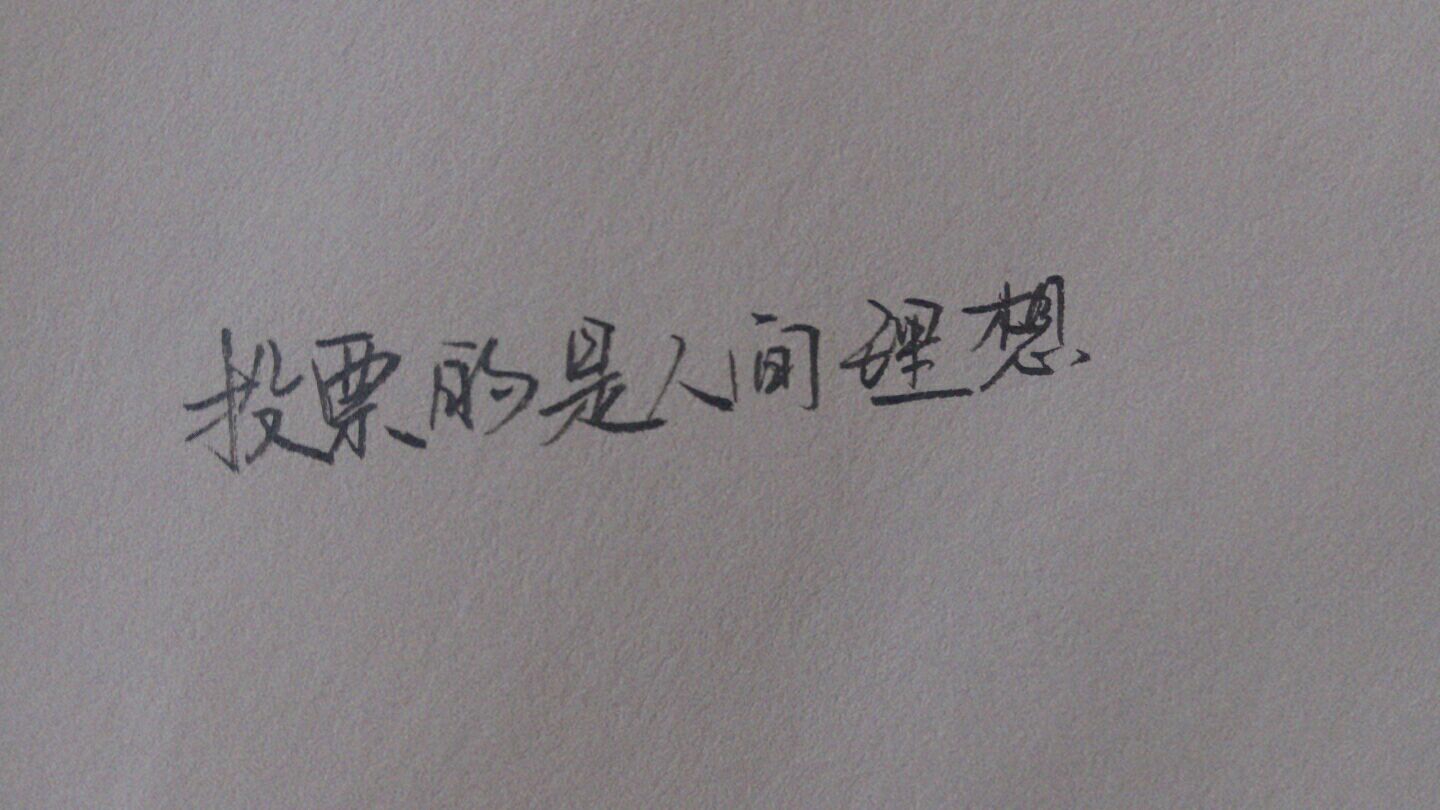 投票的是人间理想